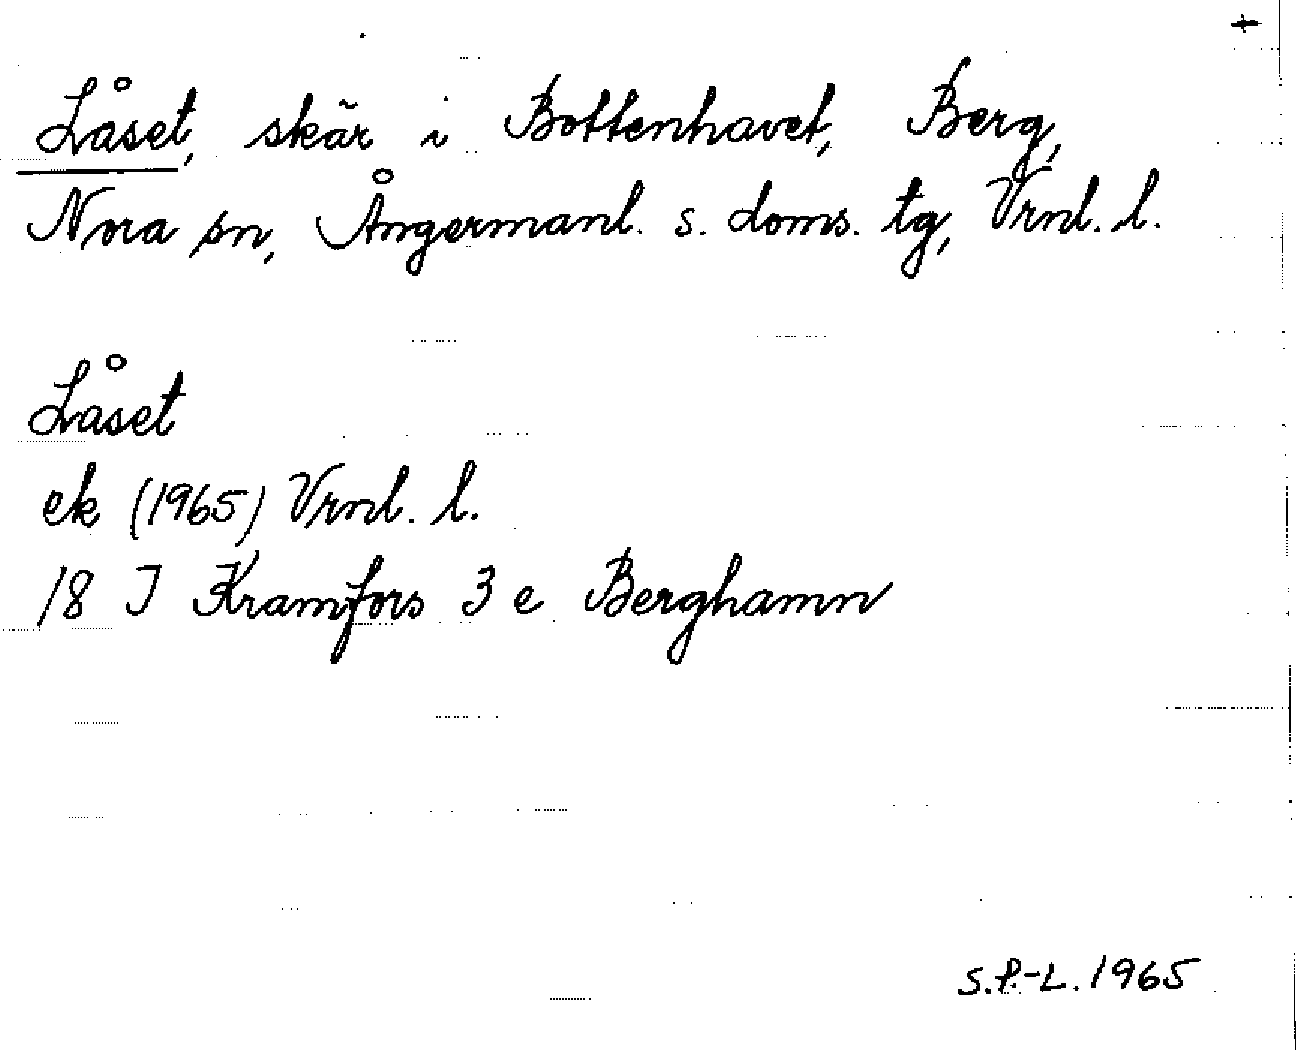 Låset, skär i Bottenhavet, Berg,
Nora sn, Ångermanl. s. doms. tg, Vrnl. l.
Låset
ek (1965) Vrnl. l.
18 I Kramfors 3 e Berghamn
S.P.-L. 1965